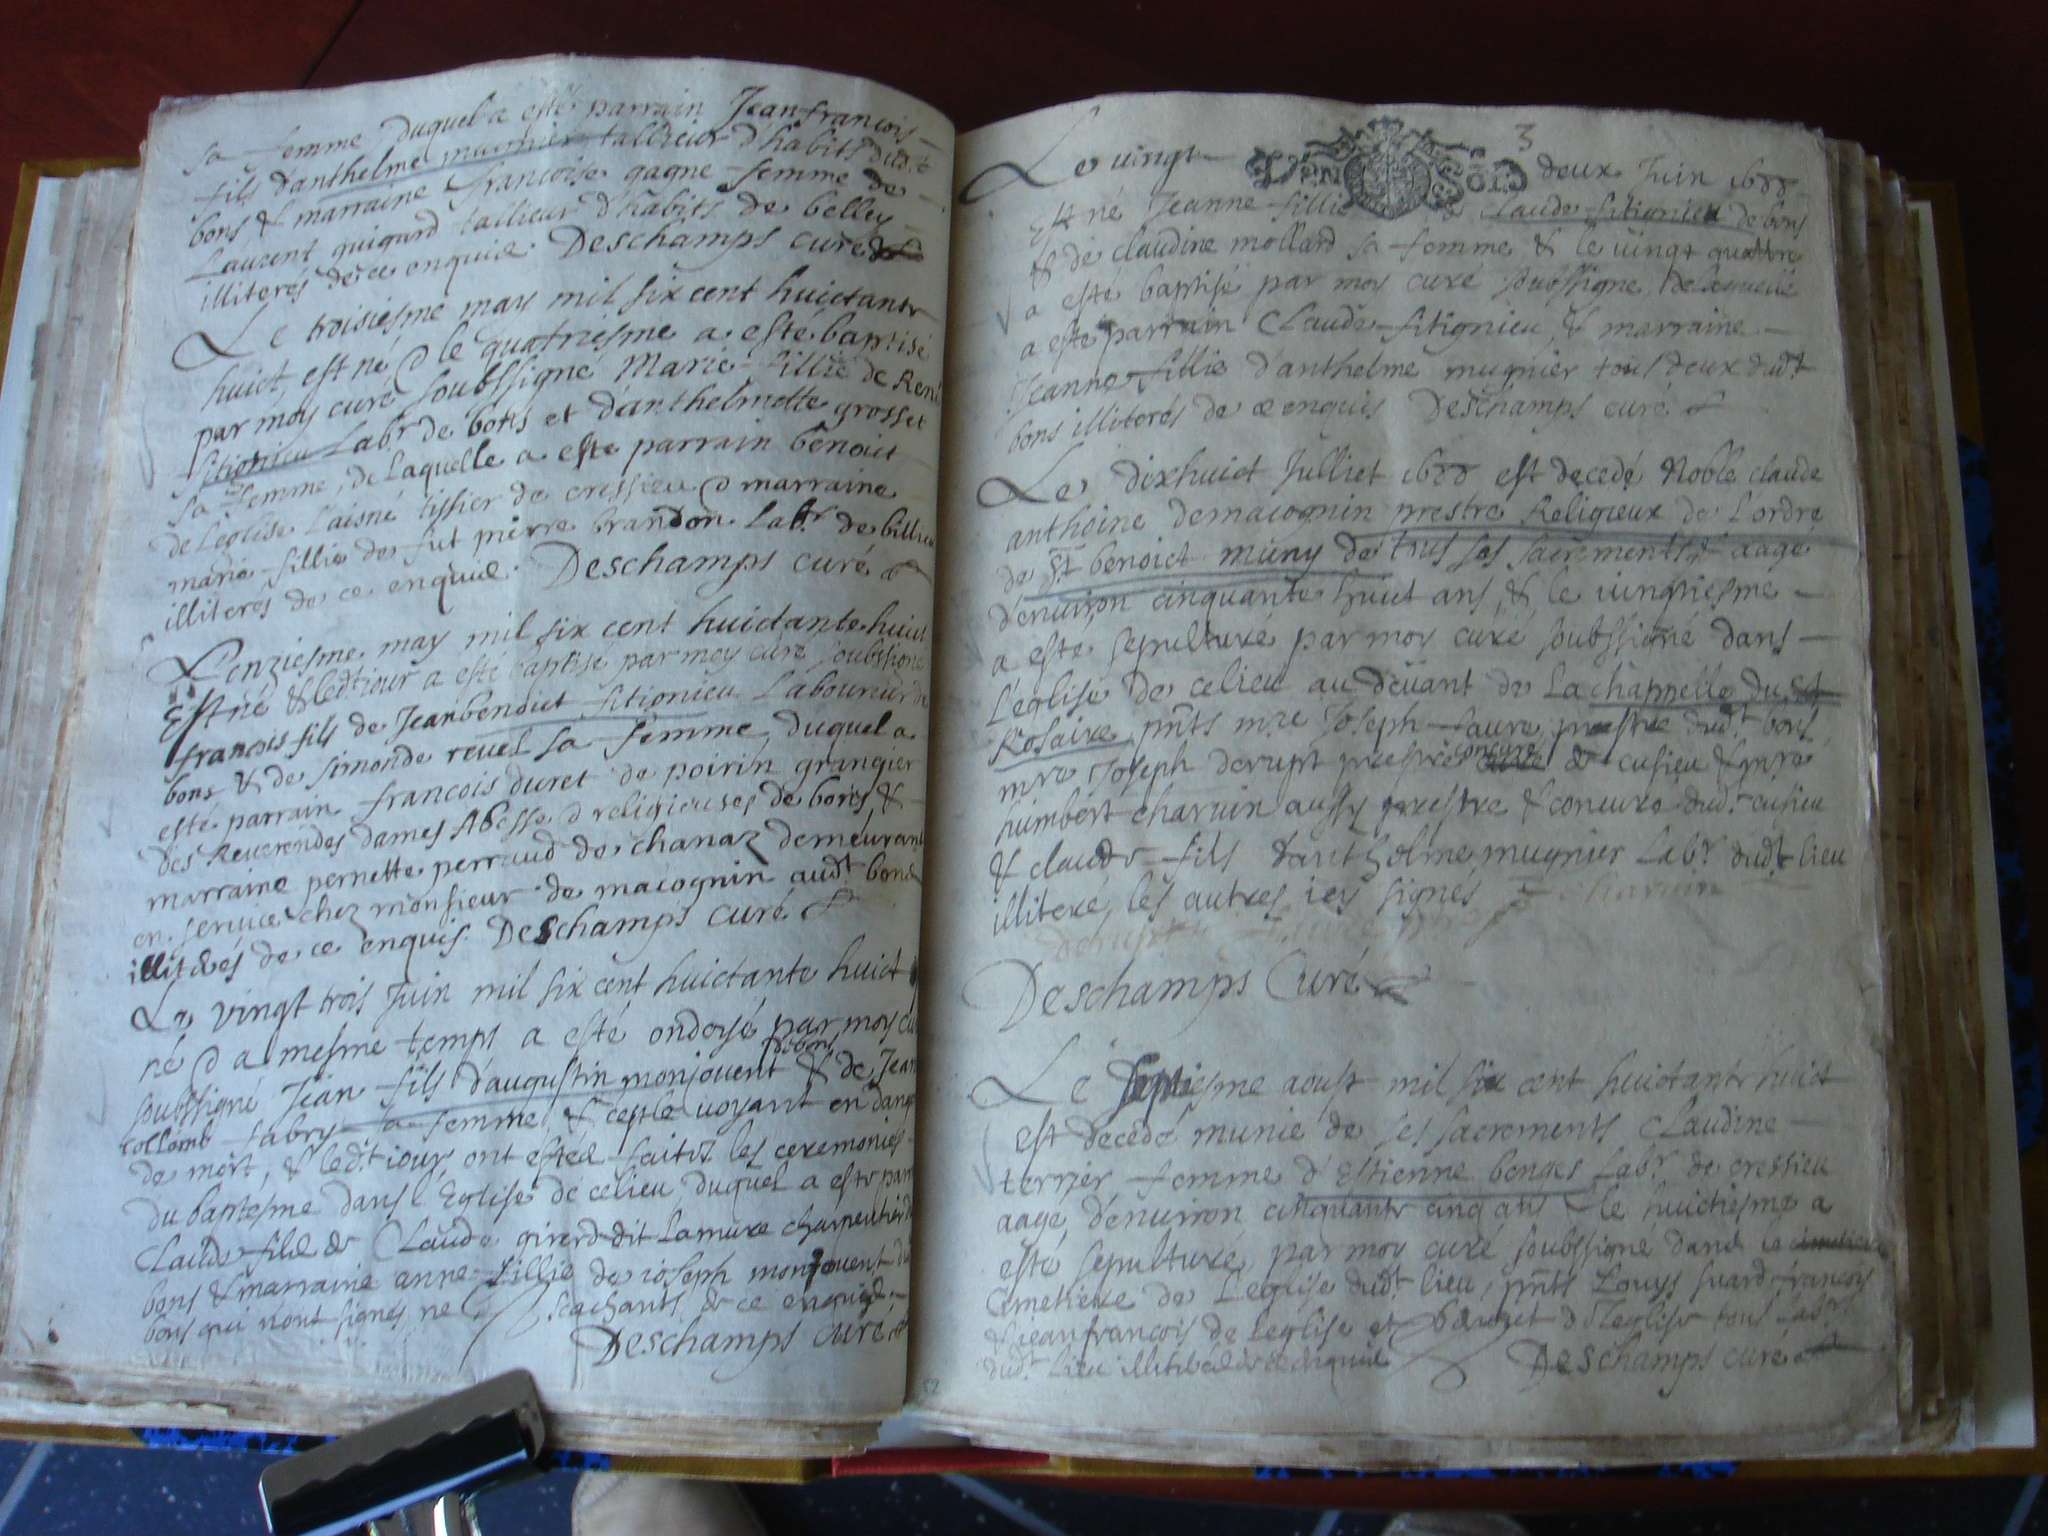 sa femme duquel a esté parrain Jean françois
fils d'anthelme mugnier tallieur d'habits dud.t
bons & marraine françoise gagne femme de
Laurent guigard tallieur d'habits de belley
illiterés de ce enquis. Deschamps curé
Le troisiesme may mil six cent huictante
huict est né & le quatriesme a esté baptisé
par moy curé soubssigné Marie fillie de René
fitignieu Lab.r de bons et d'anthelmette grosset
sa femme, de Laquelle a esté parrain benoict
de L'eglise L'aisné tissier de cressieu & marraine
marie fillie de fut pierre brandon Lab.r de billieu
illiteres de ce enquis. Deschamps curé
L'onziesme may mil six cent huictante huict
Est né & led.t jour a esté baptisé par moy curé soubssigné
françois fils de Jean benoict fitignieu Laboureur de
bons & de simonde revel sa femme, duquel a
esté parrain françois duret de poirin grangier
des Reverendes dames Abesse & religieuses de bons &
marraine pernette perraud de chanaz demeurant
en service chez monsieur de macognin aud.t bons
illiterés de ce enquis. Deschamps curé
Le vingt trois Juin mil six cent huictante huict
né & a mesme temps a esté ondoyé par moy
de bons
soubssigné Jean fils d'augustin monjouent & de Jean
collomb fabry sa femme, & ce le voyant en dange
de mort, & led.t jour ont estée faites les ceremonies
du baptesme dans l'Eglise de ce lieu duquel a esté parr
Claude fils de Claude girerd dit Lamure charpentier
bons & marraine anne fillie de joseph monjouent
bons qui n'ont signés ne scachants de ce enquis
Deschamps curé
3
Le vingt deux Juin 1688
Est né Jeanne fillie de Claude fitignieu de bons
& de claudine mollard sa femme & le vingt quattre
a esté baptisé par moy curé soubssigné, de laquelle
a esté parrain Claude fitignieu, & marraine
Jeanne fillie d'anthelme mugnier tous deux dud.t
bons illiterés de ce enquis Deschamps curé
Le dixhuict Julliet 1688 est decedé Noble claude
anthoine demacognin prestre Religieux de L'ordre
de S.t benoict muny de tous ses sacrements & aagé
d'environ cinquante huict ans, & le vingtiesme
a esté sepulturé par moy curé soubssigné dans
L'eglise de ce lieu au devant de La chappelle du S.t
Rosaire, pnts m.re Joseph favre prestre dud.t bons
m.re Joseph derupt prestre concuré de cusieu & m.re
humbert charvin aussy prestre & concuré dud.t cusieu
& claude fils d'anthelme mugnier Lab.r dud.t lieu
illiteré, les autres icy signés charvin
Deschamps Curé
Le septiesme aoust mil six cent huictante huict
est decedé munie de ses sacrements Claudine
terrier femme d'Estienne bonges Lab.r de cressieu
aagé d'environ cinquante cinq ans & le huictiesme a
esté sepulturé par moy curé soubssigné dans le
Cimetiere de L'eglise dud.t lieu, pnts Louys suard françois
& jean françois de Leglise et de L'eglise tous Lab.rs
dud.t Lieu de ce enquis Deschamps curé